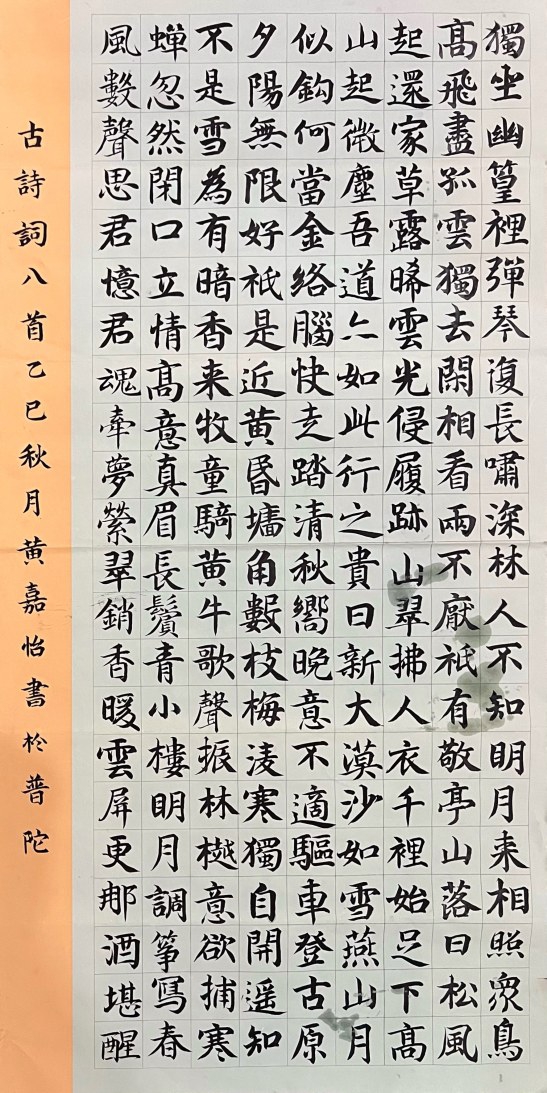 獨坐幽篁裡彈琴復長嘯深林人不知明月来相照眾鳥
髙飛盡孤雲獨去閑相看兩不厭祗有敬亭山落日松風
起還家草露晞雲光侵履跡山翠拂人衣千裡始足下髙
山起微塵吾道亦如此行之貴日新大漠沙如雪燕山月
似鈎何當金絡腦快走踏清秋嚮晚意不適驅車登古原
夕陽無限好祗是近黄昏墻角數枝梅淩寒獨自開遥知
不是雪為有暗香来牧童騎黄牛歌聲振林樾意欲捕寒
蝉忽然閉口立情髙意真眉長鬢青小樓明月調筝寫春
風數聲思君憶君魂牽夢縈翠銷香暖雲屏更那酒堪醒
古詩詞八首乙巳秋月黄嘉怡書於普陀